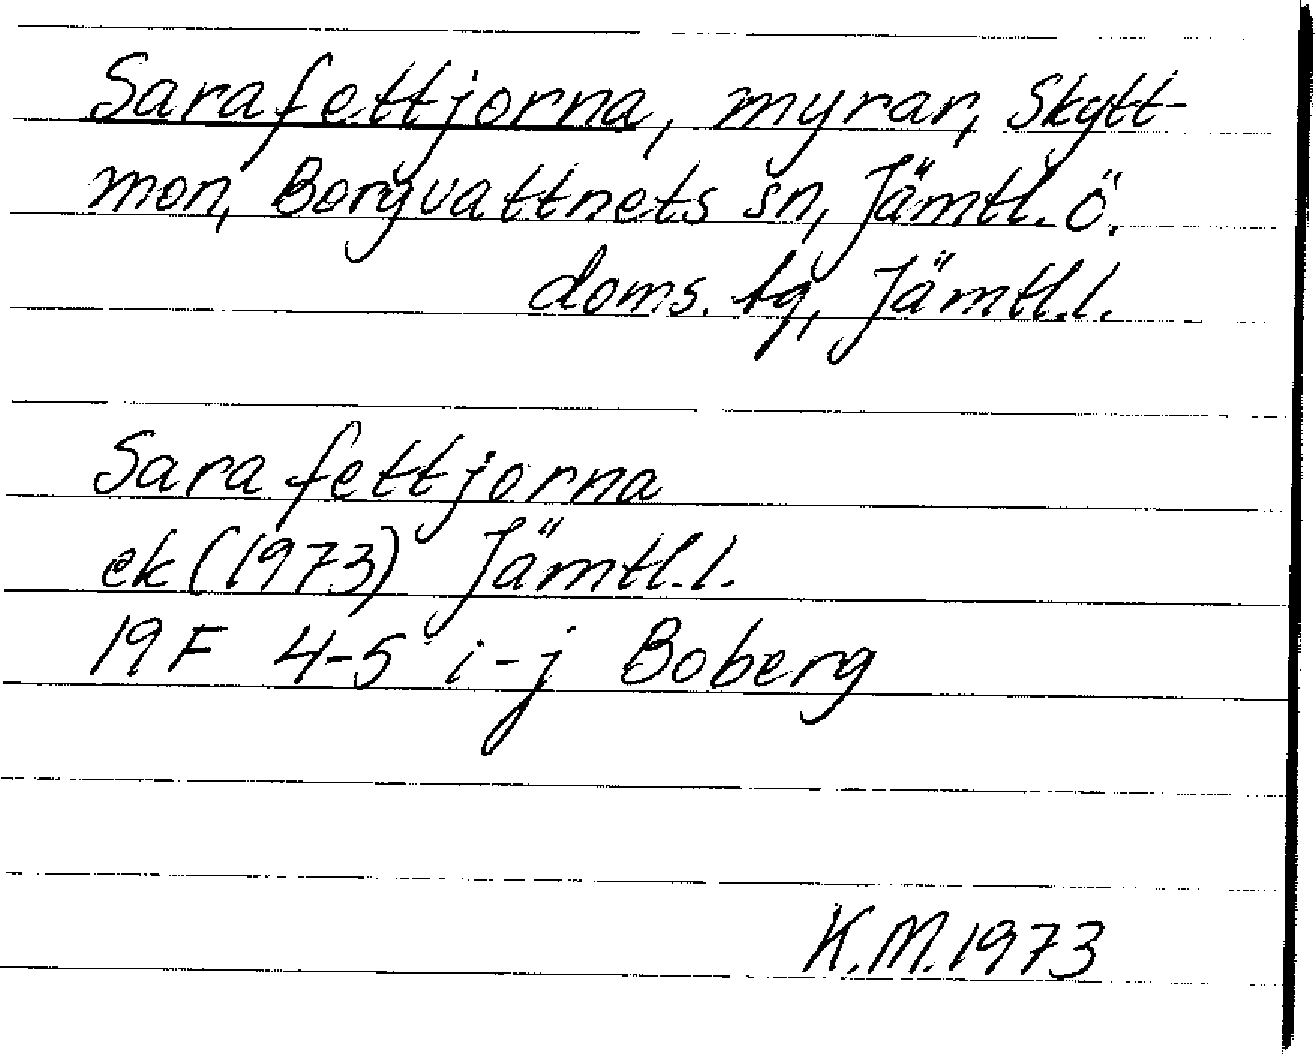 Sarafettjorna, myrar, Skytt-
mon, Borgvattnets sn, Jämtl. ö.
doms. tg, Jämtl.l.
Sarafettjorna
ek (1973) Jämtl.l.
19F 4-5 i-j Boberg
K.M. 1973